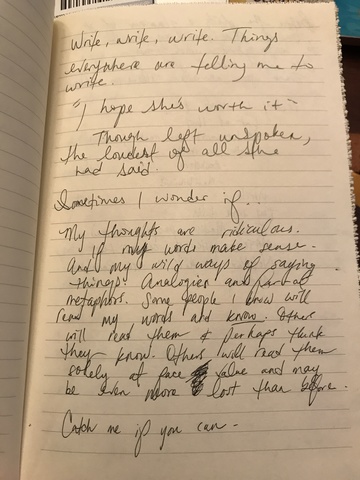 Write, write, write. Things
everywhere are telling me to
write.
"I hope she's worth it"
Though left unspoken,
the loudest of all she
had said.
Sometimes I wonder if..
My thoughts are ridiculous.
If my words make sense.
And my wild ways of saying
things? Analogies and
metaphors. Some people I know will
read my words and know. Others
will read them & perhaps think
they know. Others will read them
solely at face value and may
be even more lost than before.
Catch me if you can -